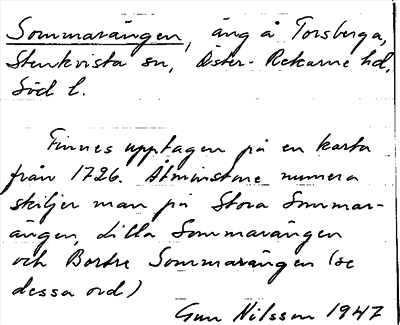 Sommarängen, äng å Torsberga,
Stenkvista sn, Öster-Rekarne hd,
Söd l.
Finnes upptagen på en karta
från 1726. Åtminstone numera
skiljer man på Stora Sommar-
ängen, Lilla Sommarängen
och Bortre Sommarängen (se
dessa ord)
Gun Nilsson 1947